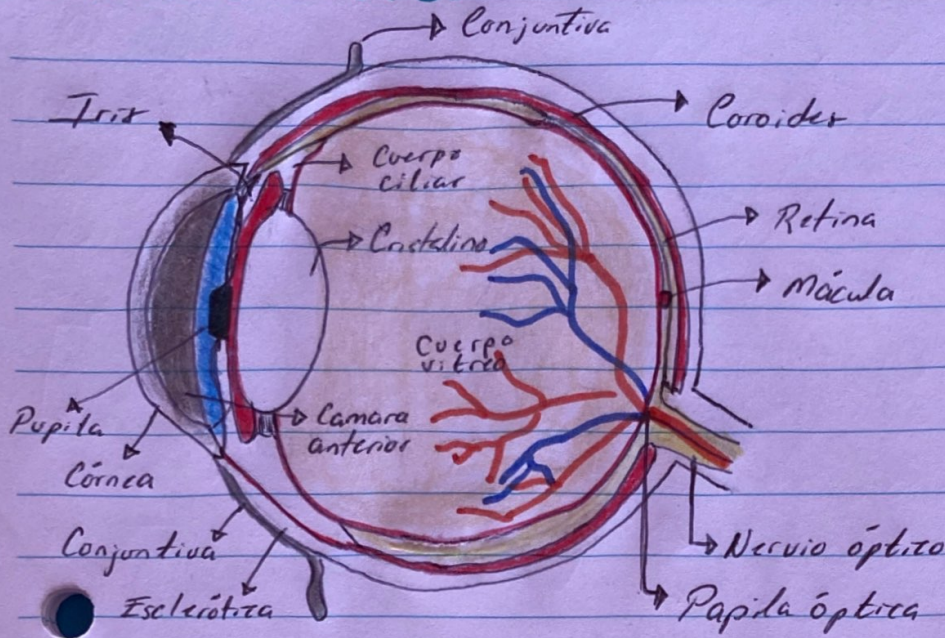 Conjuntiva
Iris
Coroides
Cuerpo
ciliar
Retina
Cristalino
Mácula
Cuerpo
vitreo
Pupila
Camara
anterior
Córnea
Conjuntiva
Nervio óptico
Esclerótica
Papila óptica